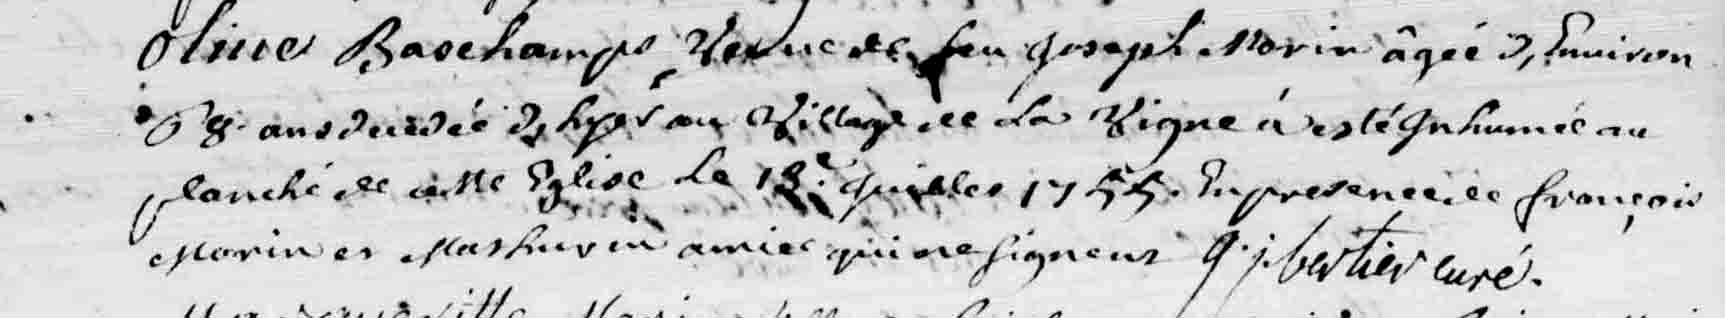 olive Baschamps Veuve de feu Joseph Morin âgée d'Environ
68 ans decedée d'hyer au Village de La Vigne á esté Inhumée au
planché de cette Eglise Le 13e Juillet 1755. En presence de françois
Morin et Mathurin amice qui ne signent G. j. bertier curé.